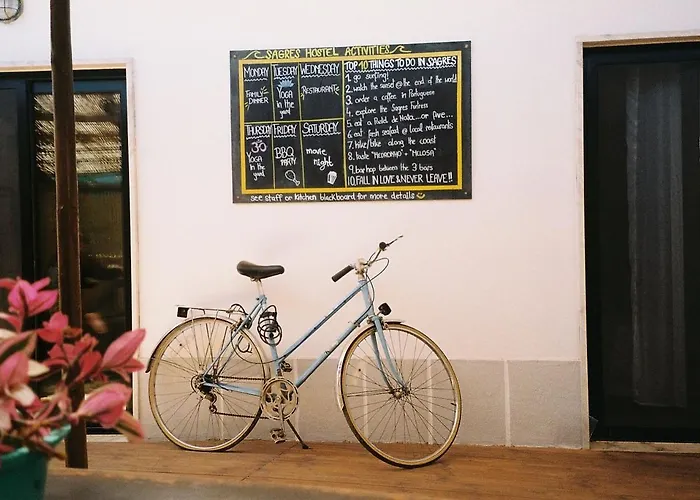 SAGRES HOSTEL ACTIVITIES
MONDAY
FAMILY
DINNER
TUESDAY
YOGA
in the
yard
WEDNESDAY
RESTAURANT
THURSDAY
YOGA
in the
yard
FRIDAY
BBQ
PARTY
SATURDAY
movie
night
TOP 10 THINGS TO DO IN SAGRES
1. go surfing!
2. watch the sunset @ the end of the world
3. order a coffee in Portuguese
4. explore the Sagres Fortress
5. eat a Pastel de Nata... or five...
6. eat fresh seafood @ local restaurants
7. hike/bike along the coast
8. taste "MEDRONHO" + "MELOSA"
9. bar hop between the 3 bars
10. FALL IN LOVE & NEVER LEAVE!!
see staff or kitchen blackboard for more details